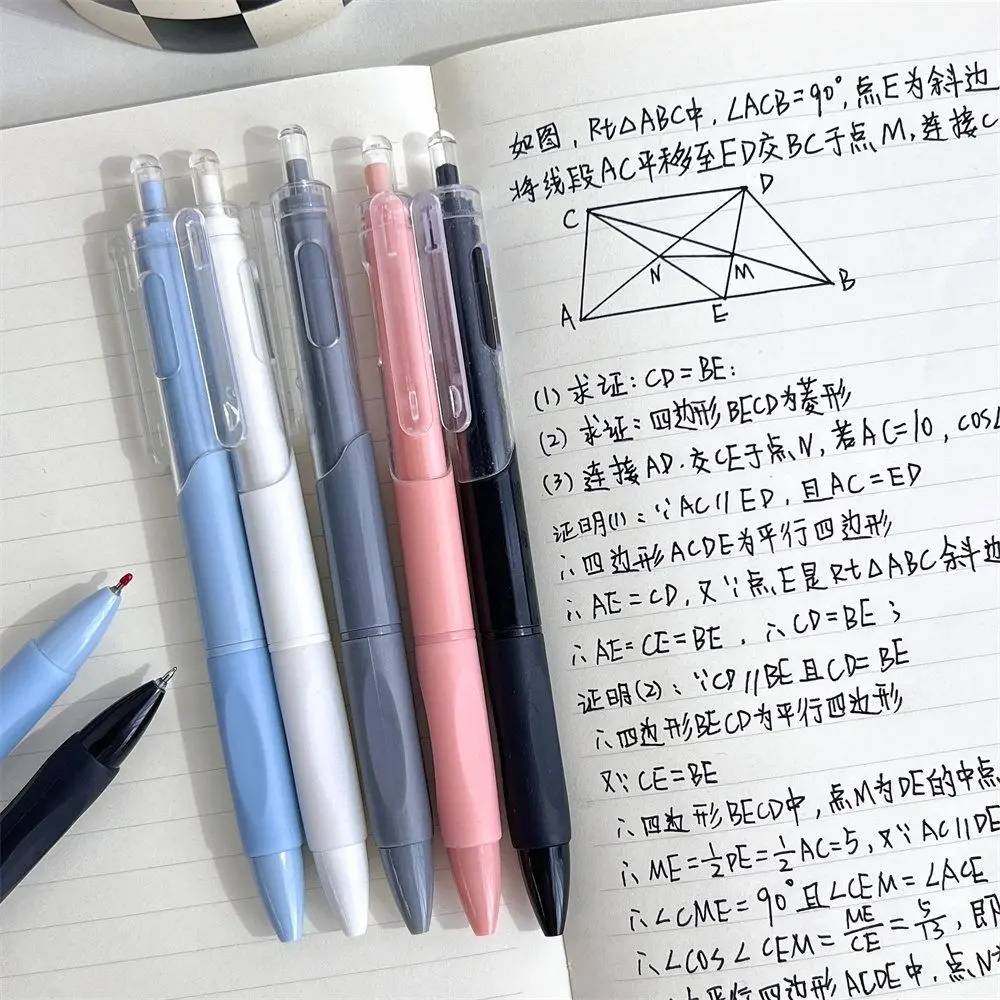 如图,Rt△ABC中,∠ACB=90°,点E为斜边
将线段AC平移至ED交BC于点M,连接C
C
D
N
M
B
A
E
(1) 求证:CD=BE:
(2) 求证:四边形BECD为菱形
(3) 连接AD.交CE于点N,若AC=10,cos∠
证明(1):∵AC∥ED,且AC=ED
∴四边形ACDE为平行四边形
∴AE=CD,又∵点E是Rt△ABC斜边
∴AE=CE=BE.∴CD=BE;
证明(2):∵CD∥BE且CD=BE
∴四边形BECD为平行四边形
又∵CE=BE
∴四边形BECD中,点M为DE的中点
∴ME=1/2DE=1/2AC=5,又∵AC∥DE
∴∠CME=90°且∠CEM=∠ACE
∴∠COS∠CEM=ME/CE=5/13,即
平行四边形ACDE中,点N